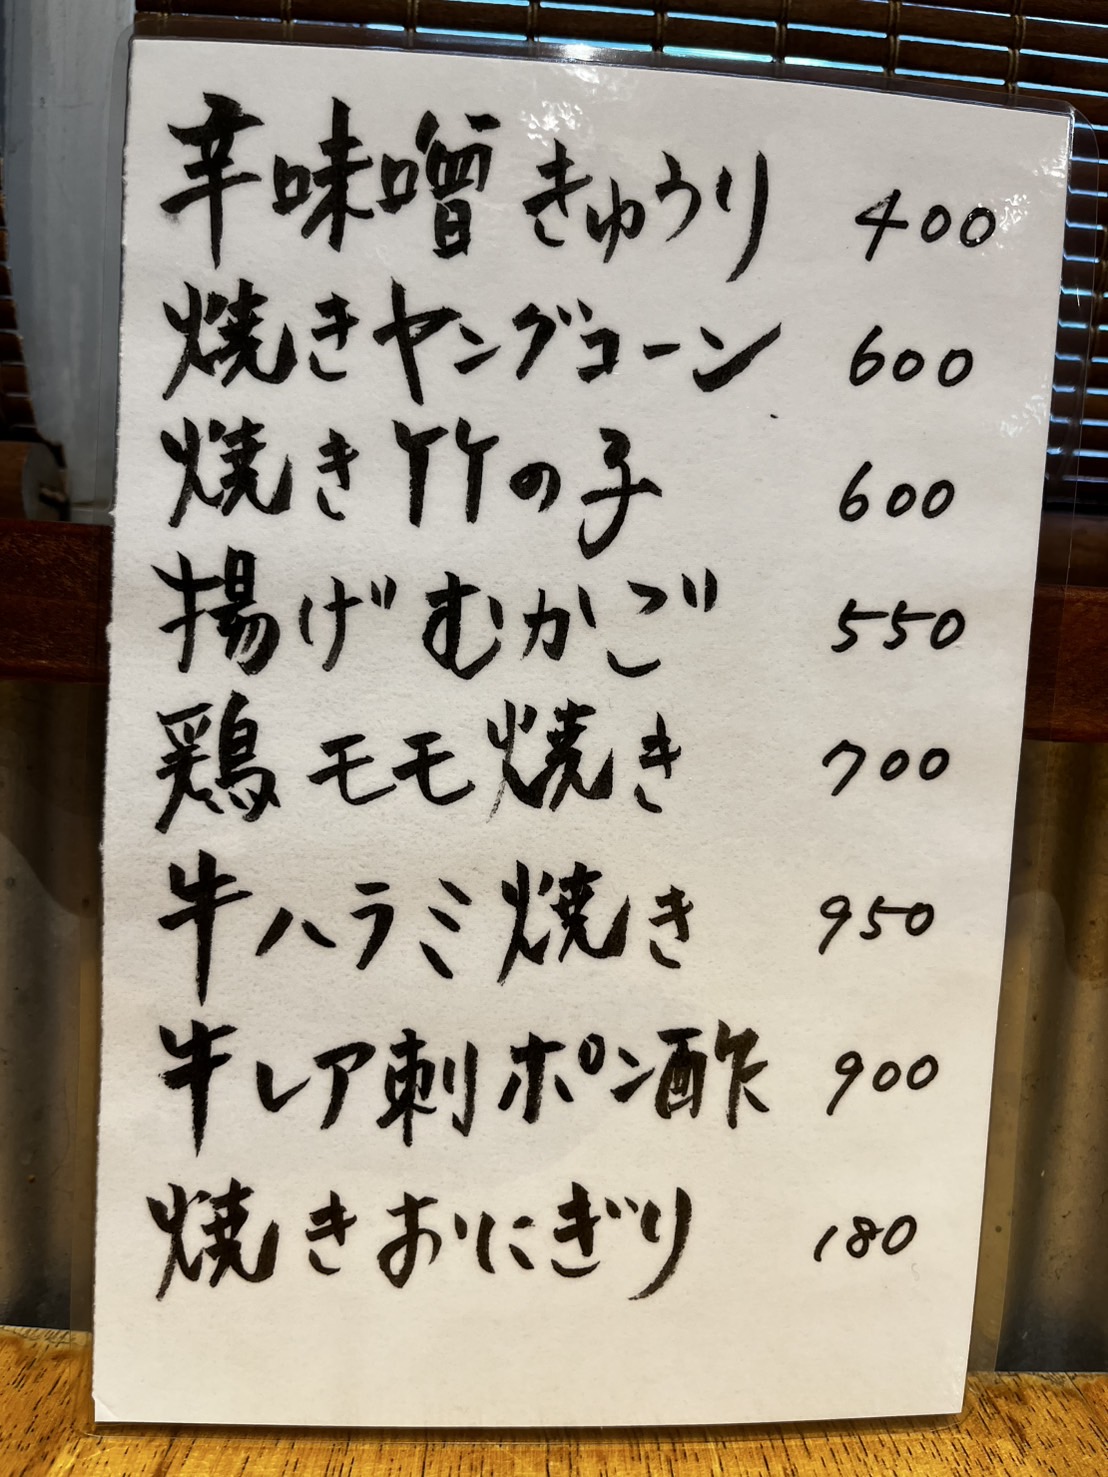 辛味噌きゅうり 400
焼きヤングコーン 600
焼き竹の子 600
揚げむかご 550
鶏モモ焼き 700
牛ハラミ焼き 950
牛レア刺ポン酢 900
焼きおにぎり 180